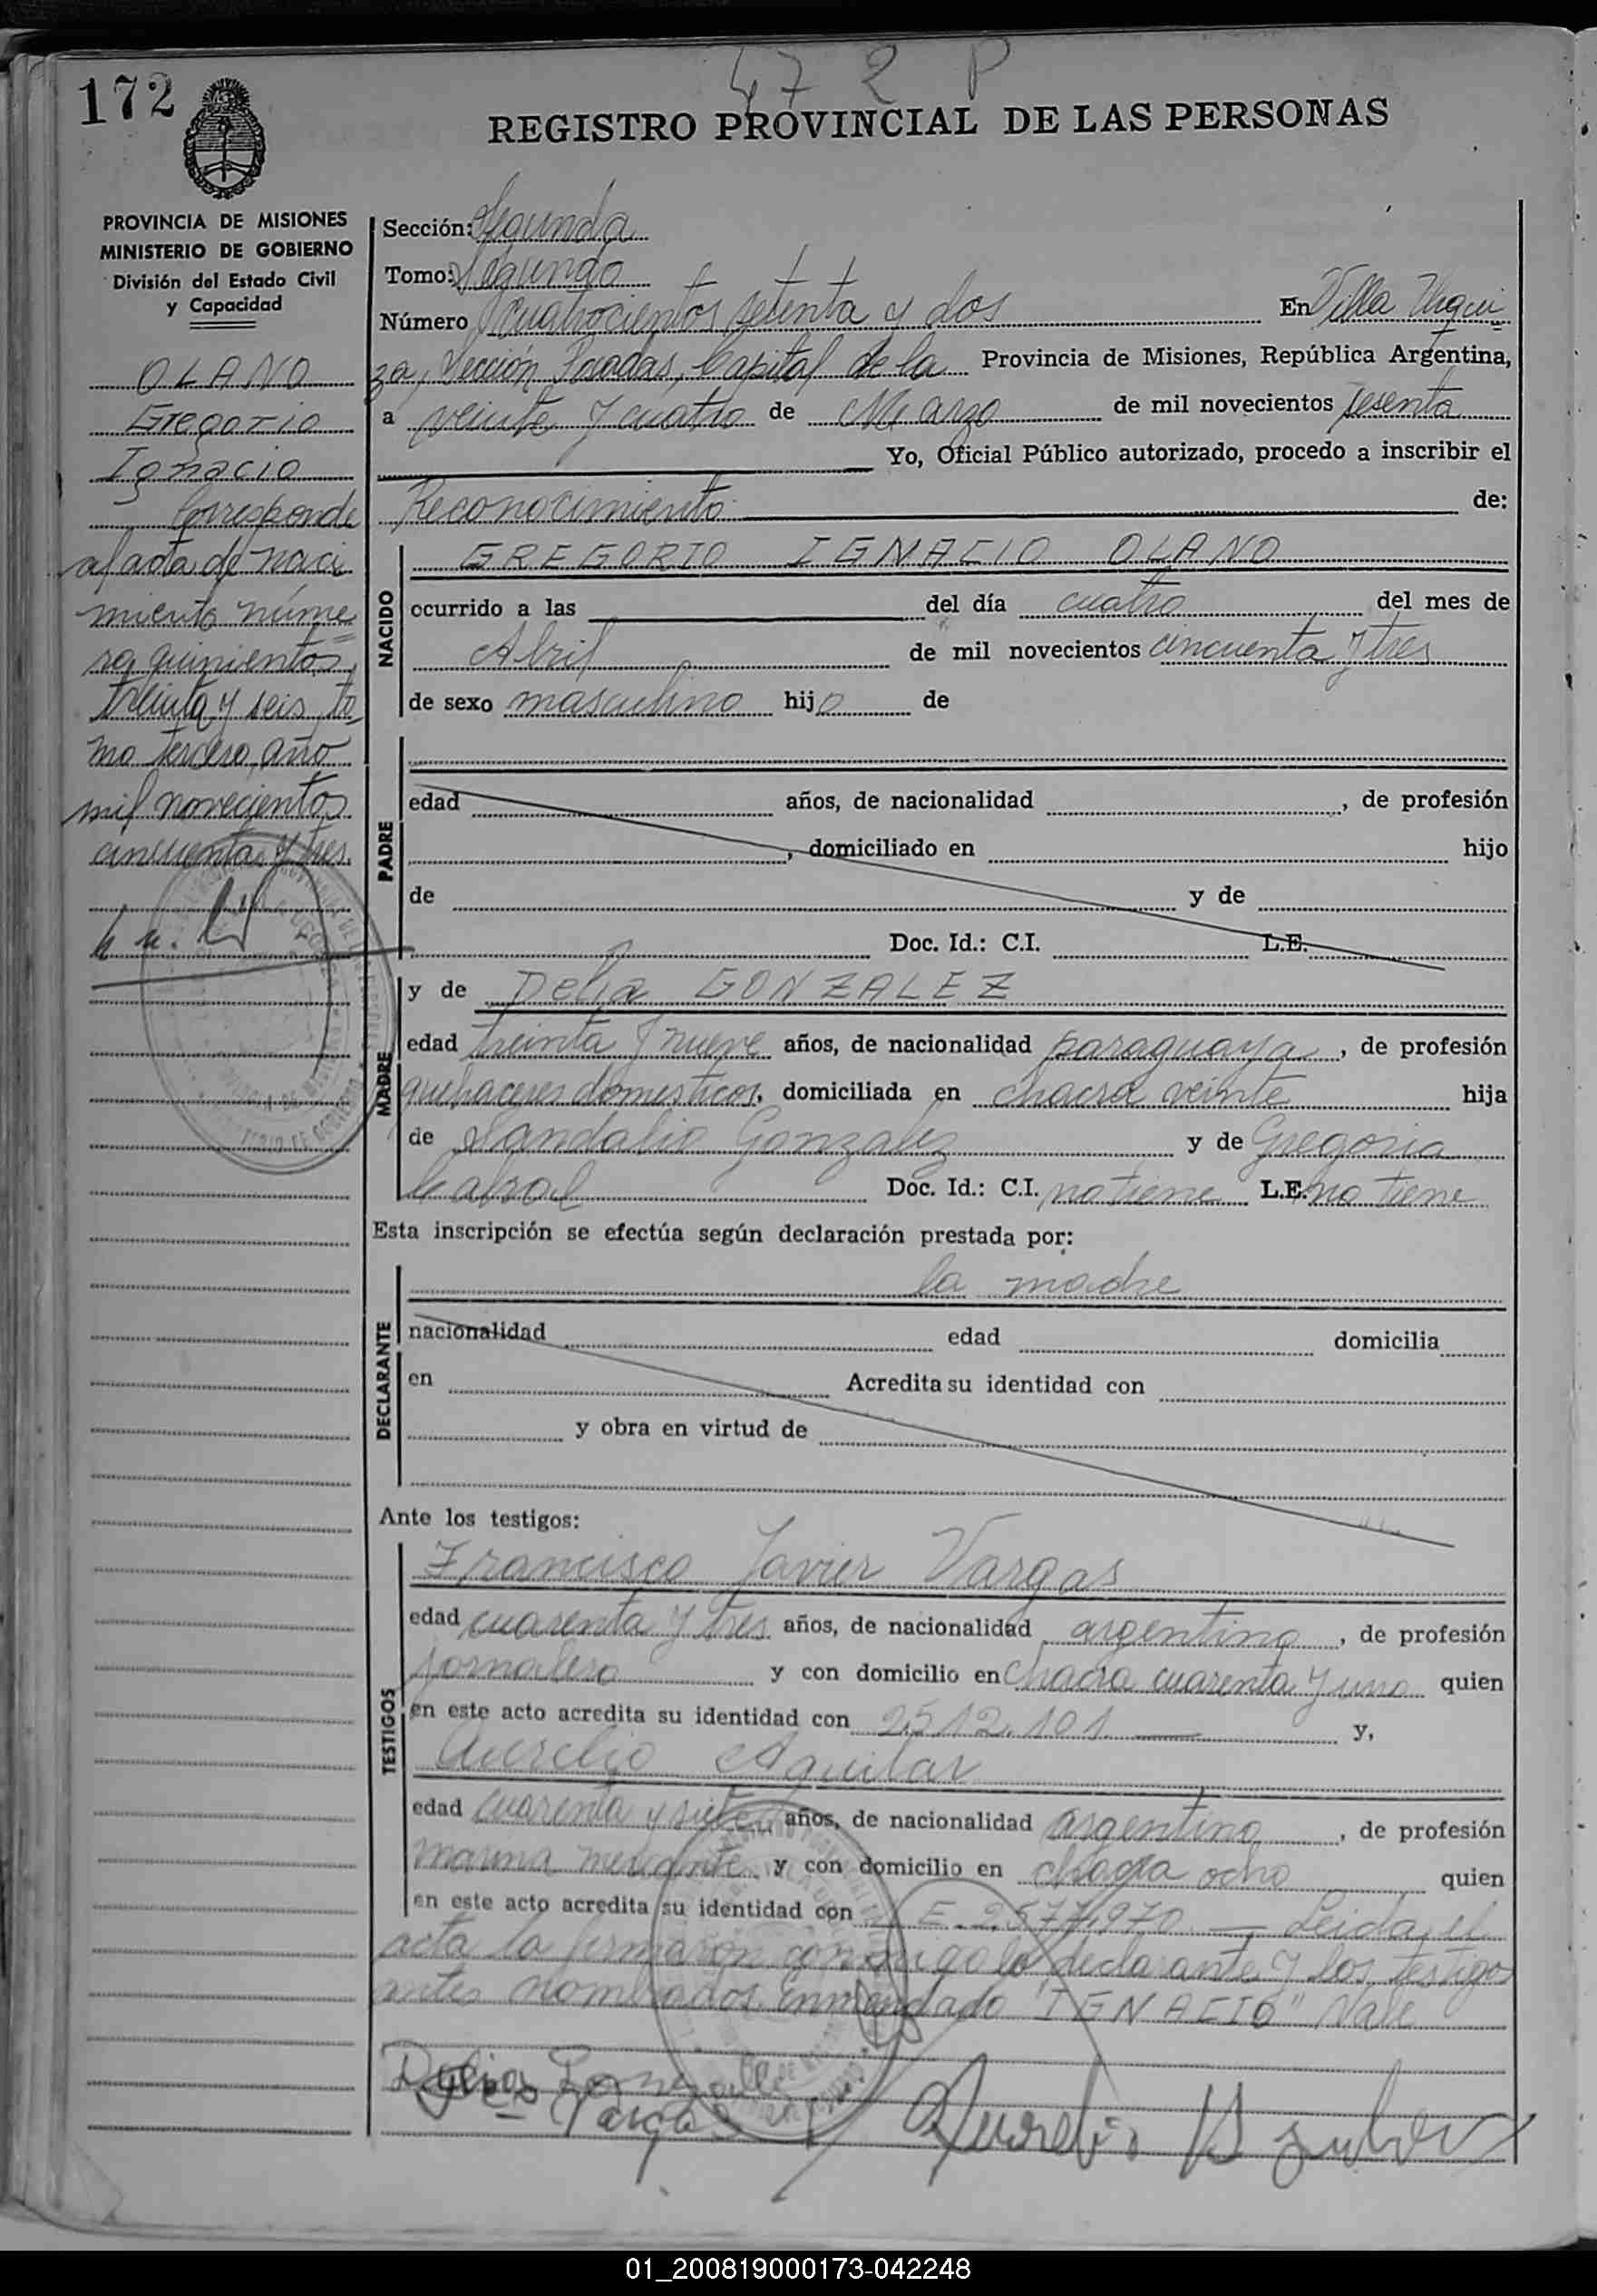 172
47 2 P
REGISTRO PROVINCIAL DE LAS PERSONAS
PROVINCIA DE MISIONES
MINISTERIO DE GOBIERNO
División del Estado Civil
y Capacidad
OLANO
Gregorio
Ignacio
Corresponde
al acta de naci
miento núme
ro quinientos
treinta y seis, to
mo tercero, año
mil novecientos
cincuenta y tres.
Sección: Segunda
Tomo: Segundo
Número Cuatrocientos setenta y dos En Villa Urqui
za, Sección Posadas, Capital de la Provincia de Misiones, República Argentina,
a veinte y cuatro de Marzo de mil novecientos sesenta
Yo, Oficial Público autorizado, procedo a inscribir el
Reconocimiento de:
NACIDO
GREGORIO IGNACIO OLANO
ocurrido a las del día cuatro del mes de
Abril de mil novecientos cincuenta y tres
de sexo masculino hijo de
PADRE
edad años, de nacionalidad , de profesión
, domiciliado en hijo
de y de
Doc. Id.: C.I. L.E.
MADRE
y de Delia GONZALEZ
edad treinta y nueve años, de nacionalidad paraguaya, de profesión
quehaceres domesticos, domiciliada en chacra veinte hija
de Sandalio Gonzalez y de Gregoria
Cabral Doc. Id.: C.I. no tiene L.E. no tiene
Esta inscripción se efectúa según declaración prestada por:
DECLARANTE
la madre
nacionalidad edad domicilia
en Acredita su identidad con
y obra en virtud de
Ante los testigos:
TESTIGOS
Francisco Javier Vargas
edad cuarenta y tres años, de nacionalidad argentino, de profesión
jornalero y con domicilio en Chacra cuarenta y uno quien
en este acto acredita su identidad con 2512.101. y,
Aurelio Aguilar
edad cuarenta y siete años, de nacionalidad argentino, de profesión
marina mercante y con domicilio en chacra ocho quien
en este acto acredita su identidad con E. 2.577.970 — Leida el
acta la firmaron conmigo la declarante y los testigos
antes nombrados. Enmendado "IGNACIO" Vale
Vargas
Aurelio Aguilar
01_200819000173-042248